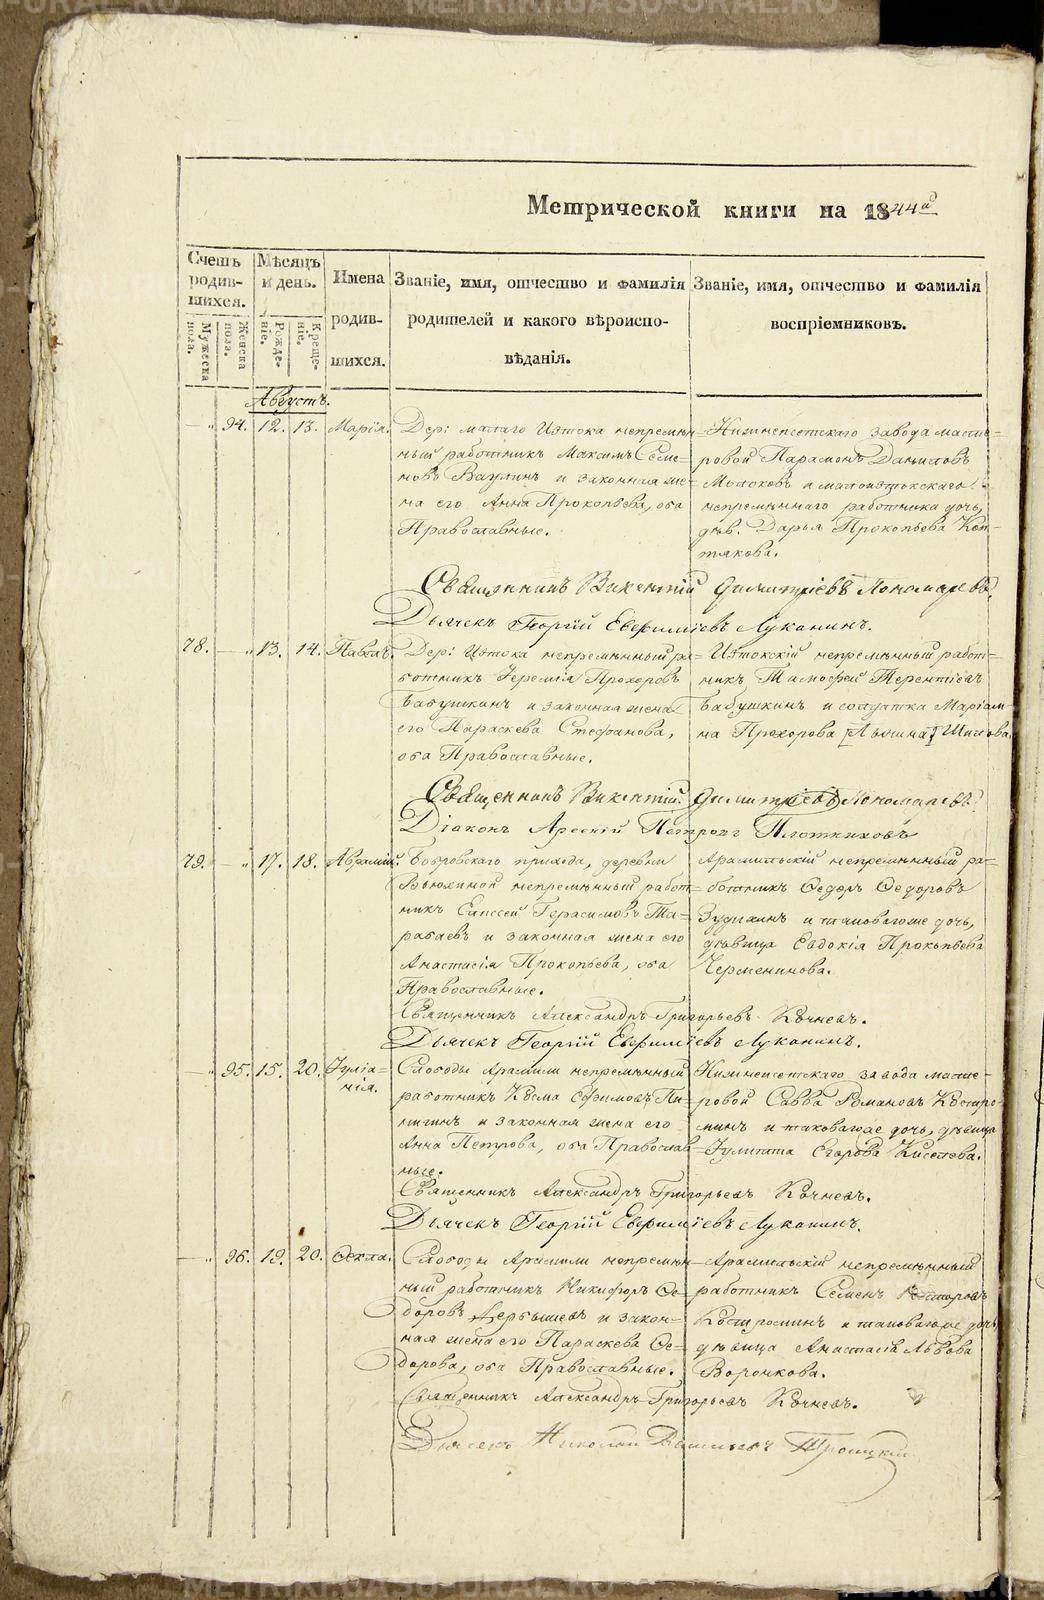 METRIKI.GASO-URAL.RU
Метрической книги на 1844й
Счетъ родившихся.
Мѣсяцъ и день.
Имена родившихся.
Званіе, имя, отчество и фамилія родителей и какого вѣроисповѣданія.
Званіе, имя, отчество и фамилія воспріемниковъ.
Мужеска пола.
Женска пола.
Рожденіе.
Крещеніе.
Августъ.
— „ 94. 12. 13. Марія.
Дер: малаго Изтока непремѣн-
ный работникъ Максимъ Семе-
новъ Ваулинъ и законная же-
на его Анна Прокопьева, оба
Православные.
Нижнеисетскаго завода масте-
ровой Парамонъ Даниловъ
Молоковъ и малоизтокскаго
непремѣннаго работника дочь,
дѣв. Дарья Прокопьева Кот-
тякова.
Священникъ Викентій Димитріевъ Пономаревъ.
Дьячекъ Георгій Евѳиміевъ Луканинъ.
78. — „ 13. 14. Павелъ.
Дер: Изтока непремѣнный ра-
ботникъ Іеремія Прохоровъ
Бабушкинъ и законная жена
его Параскева Стефанова,
оба Православные.
Изтокскій непремѣнный работ-
никъ Тимофей Терентіевъ
Бабушкинъ и солдатка Маріам-
на Прохорова Шилова.
Священникъ Викентій Димитріевъ Пономаревъ.
Діаконъ Арсеній Петровъ Плотниковъ
79. — „ 17. 18. Аврамій.
Бобровскаго прихода, деревни
Вьюхиной непремѣнный работ-
никъ Елисей Герасимовъ Та-
рабаевъ и законная жена его
Анастасія Прокопьева, оба
Православные.
Арамильскій непремѣнный ра-
ботникъ Ѳедоръ Ѳедоровъ
Зудихинъ и таковагоже дочь,
дѣвица Евдокія Прокопьева
Черменинова.
Священникъ Александръ Григорьевъ Кочневъ.
Дьячекъ Георгій Евѳиміевъ Луканинъ.
— „ 95. 15. 20. Іуліа-
нія.
Слободы Арамили непремѣнный
работникъ Косма Ефимовъ Пи-
нигинъ и законная жена его
Анна Петрова, оба Православ-
ные.
Нижнеисетскаго завода масте-
ровой Савва Романовъ Костро-
минъ и таковагоже дочь, дѣвица
Іулитта Егорова Киселева.
Священникъ Александръ Григорьевъ Кочневъ.
Дьячекъ Георгій Евѳиміевъ Луканинъ.
— „ 96. 19. 20. Ѳекла.
Слободы Арамили непремѣн-
ный работникъ Никифоръ Ѳе-
доровъ Дербышевъ и закон-
ная жена его Параскева Ѳе-
дорова, оба Православные.
Арамильскій непремѣнный
работникъ Семенъ
Костроминъ и таковагоже дочь,
дѣвица Анастасія Львова
Воронкова.
Священникъ Александръ Григорьевъ Кочневъ.
Дьячекъ Николай Васильевъ Троицкій